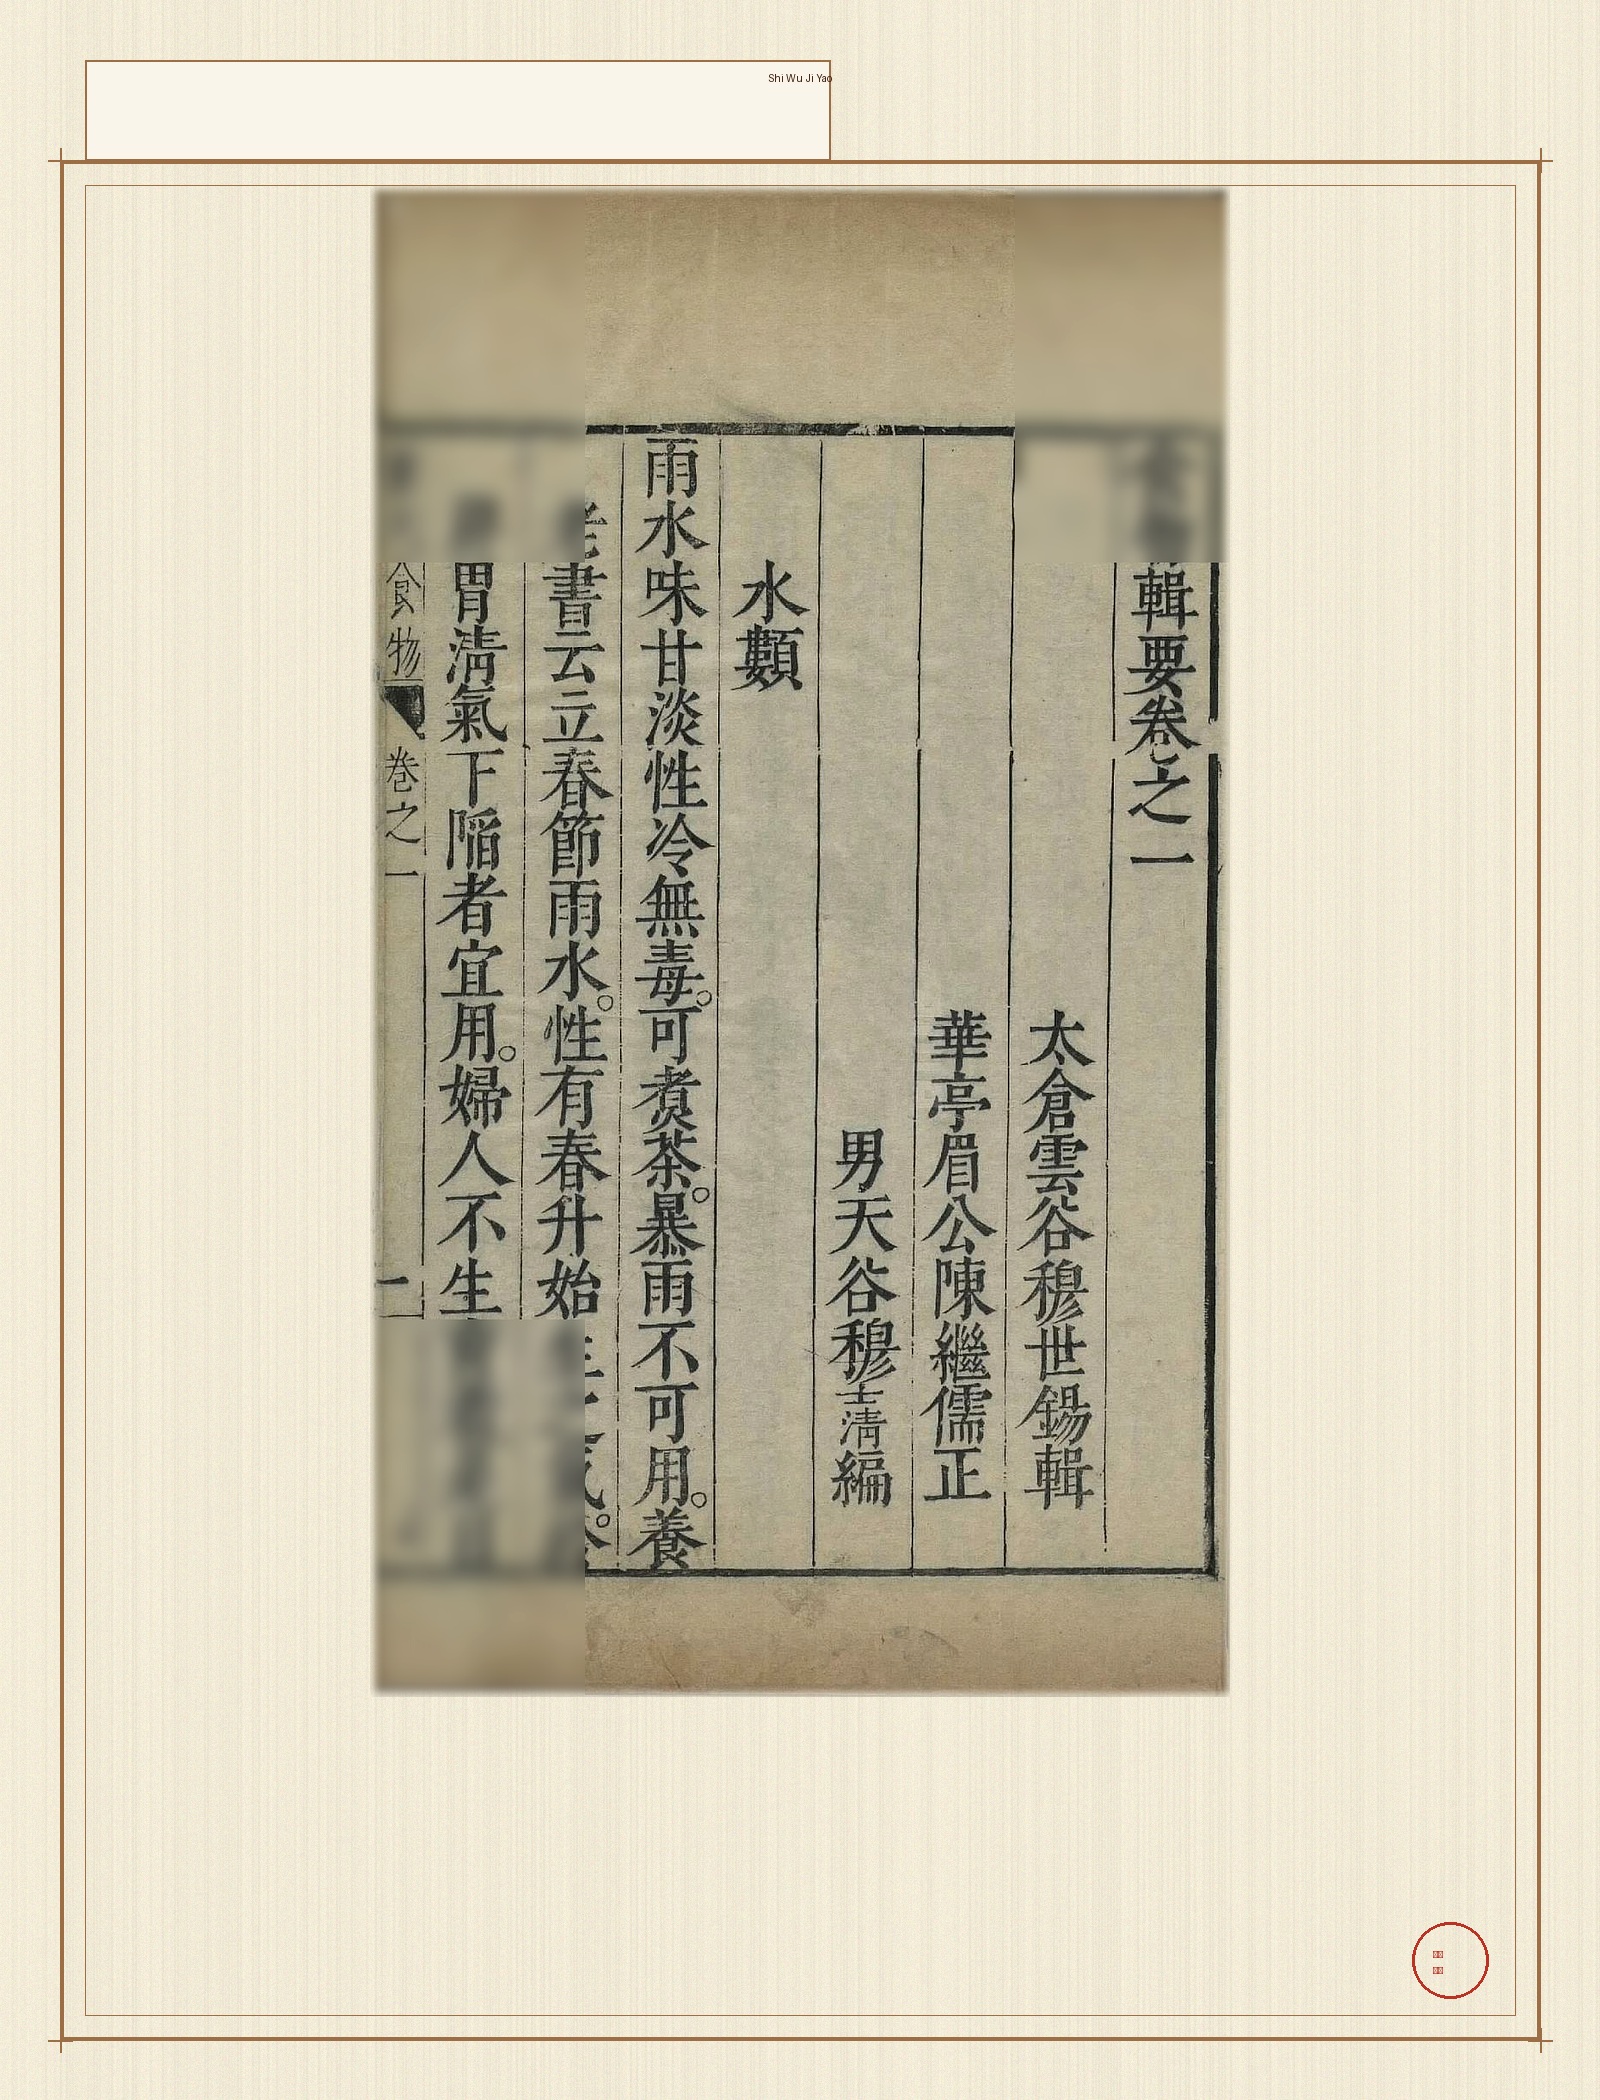 Shi Wu Ji Yao
輯要卷之一
太倉雲谷穆世錫輯
華亭眉公陳繼儒正
男天谷穆士清編
水類
雨水味甘淡性冷無毒。可煑茶。暴雨不可用。養
書云立春節雨水。性有春升始
胃清氣下陷者宜用。婦人不生
食物 卷之一 一